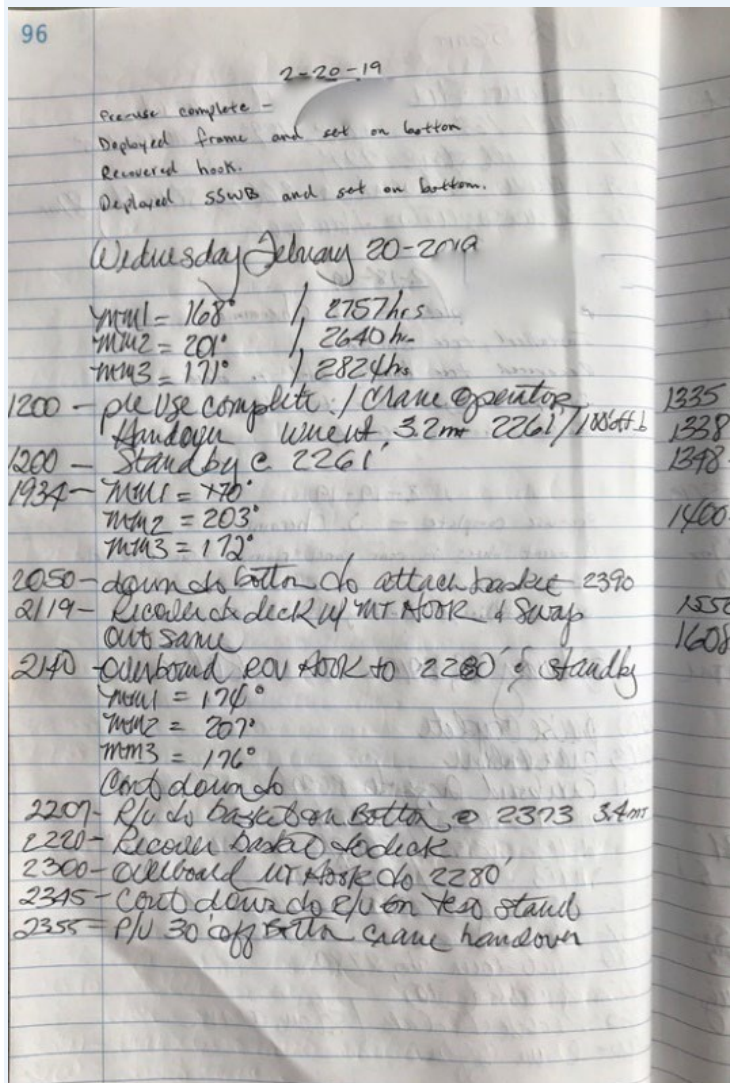 96
2-20-19
Preuse complete -
Deployed frame and set on bottom
Recovered hook.
Deployed SSWB and set on bottom.
Wednesday February 20-2019
MM1 = 168° / 2757hrs
MM2 = 201° / 2640hr
MM3 = 171° / 2824hrs
1200 - pre use complete / crane operator
Handover 3.2mt 2261'
1200 - Standby @ 2261'
1934 - MM1 = 170°
MM2 = 203°
MM3 = 172°
2050 - down to bottom to attach basket 2390
2119 - Recover to deck w/ MT HOOK & Swap
out same
2140 - Overboard ROV HOOK to 2280' & standby
MM1 = 174°
MM2 = 207°
MM3 = 176°
Cont down to
2207 - P/U to basket on Bottom @ 2373 3.4mt
2220 - Recover basket to deck
2300 - Overboard MT Hook to 2280'
2345 - Cont down to P/U on test stand
2355 - P/U 30' off Bottom crane handover
1335
1338
1348
1400
1608